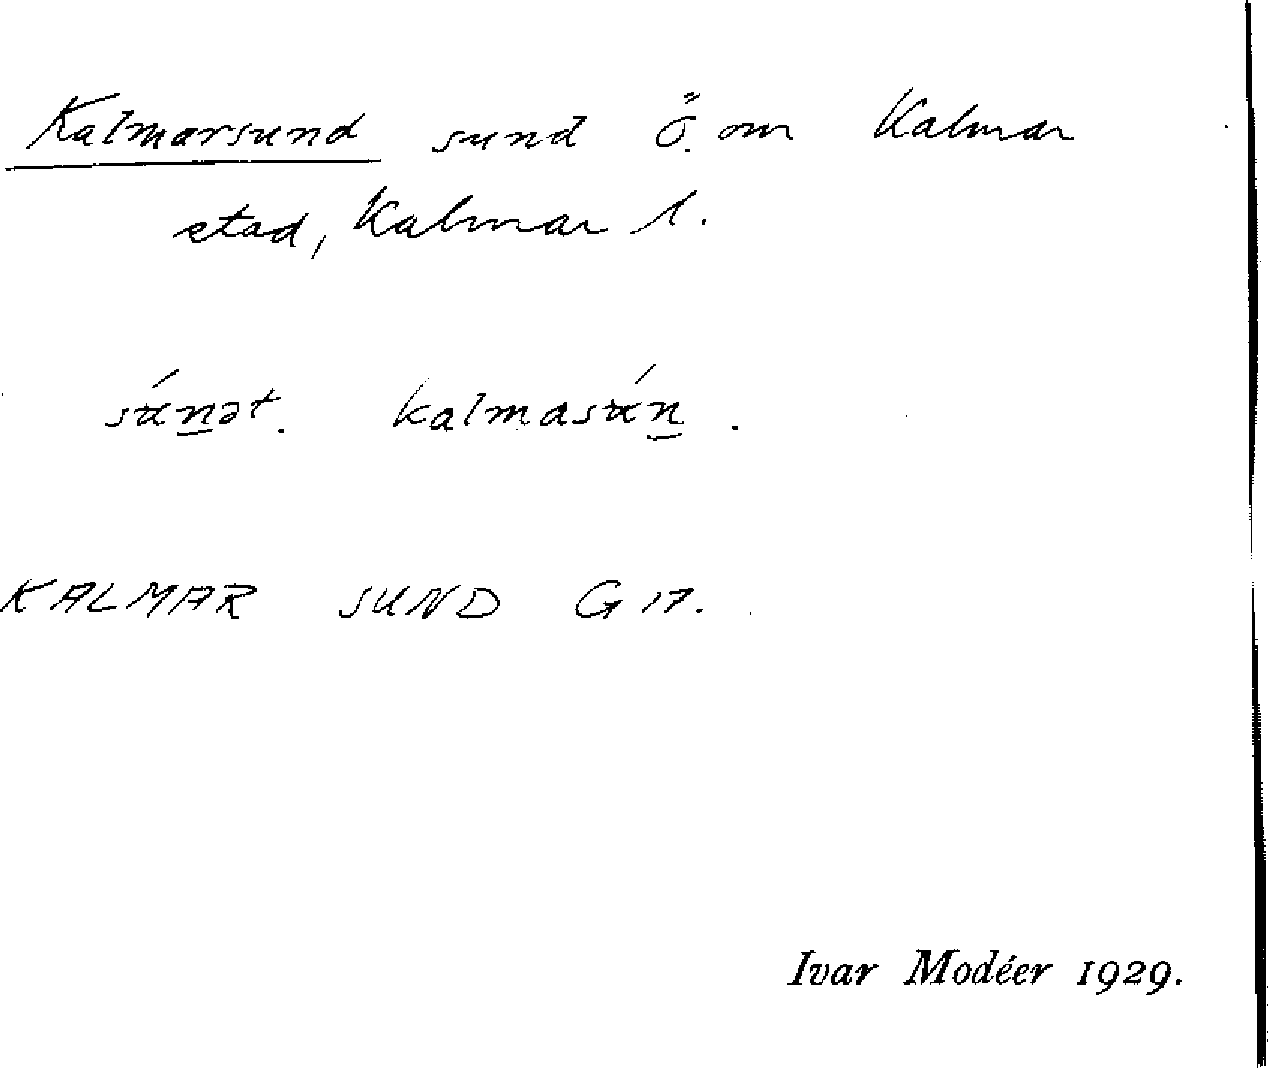 Kalmarsund sund ö. om Kalmar
stad, Kalmar l.
sú̵n̲ət. kalmasú̵n̲.
KALMAR SUND G 17.
Ivar Modéer 1929.